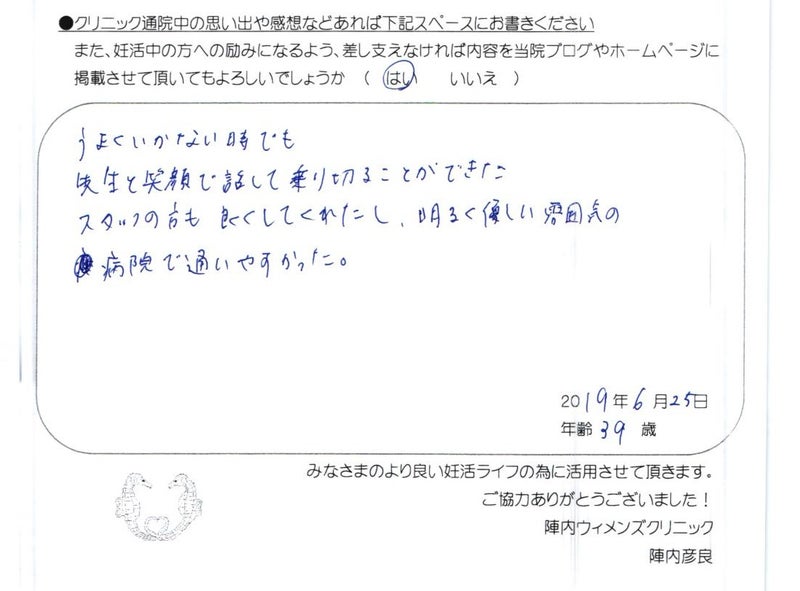 ●クリニック通院中の思い出や感想などあれば下記スペースにお書きください
また、妊活中の方への励みになるよう、差し支えなければ内容を当院ブログやホームページに
掲載させて頂いてもよろしいでしょうか （ はい いいえ ）
うまくいかない時でも
先生と笑顔で話して乗り切ることができた
スタッフの方も良くしてくれたし、明るく優しい雰囲気の
病院で通いやすかった。
2019年6月25日
年齢39歳
みなさまのより良い妊活ライフの為に活用させて頂きます。
ご協力ありがとうございました！
陣内ウィメンズクリニック
陣内彦良